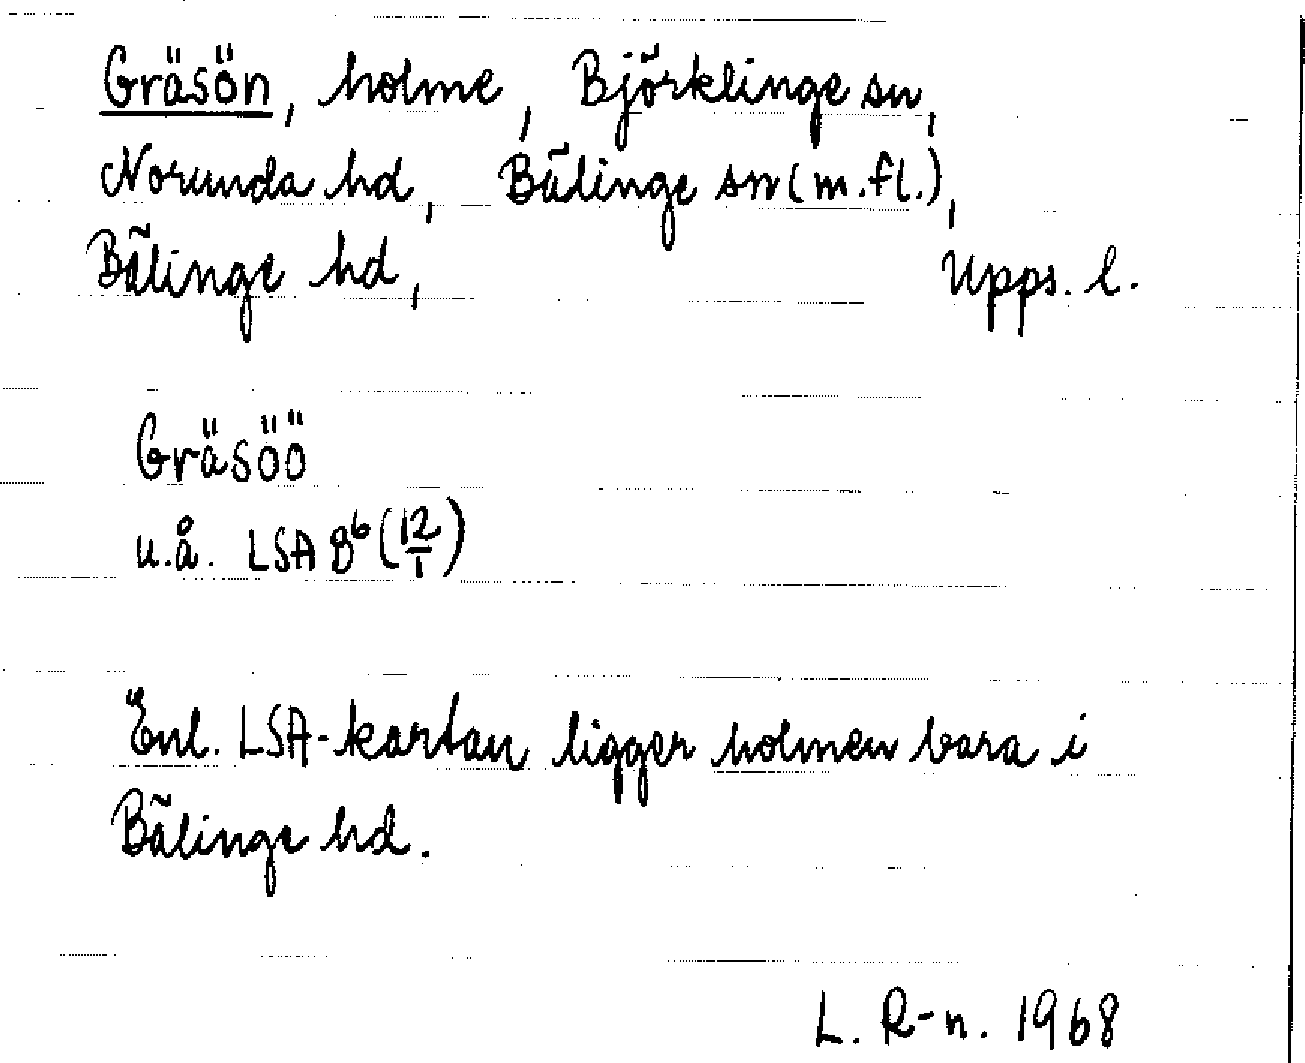 Gräsön, holme, Björklinge sn,
Norunda hd, Bälinge sn (m.fl.),
Bälinge hd, Upps. l.
Gräsöö
u.å. LSA 8b (12/1)
Enl. LSA-kartan ligger holmen bara i
Bälinge hd.
L. R-n. 1968